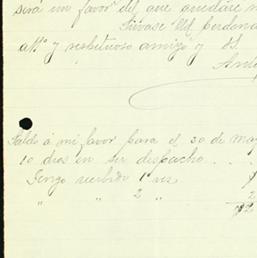 será un favor del que quedaré
Sírvase Ud perdona
att° y respetuoso amigo y S.
Anto
Saldo á mi favor para el 30 de May
10 dias en su despacho . . . .
Tengo recibido 1 vez
" " 2 "